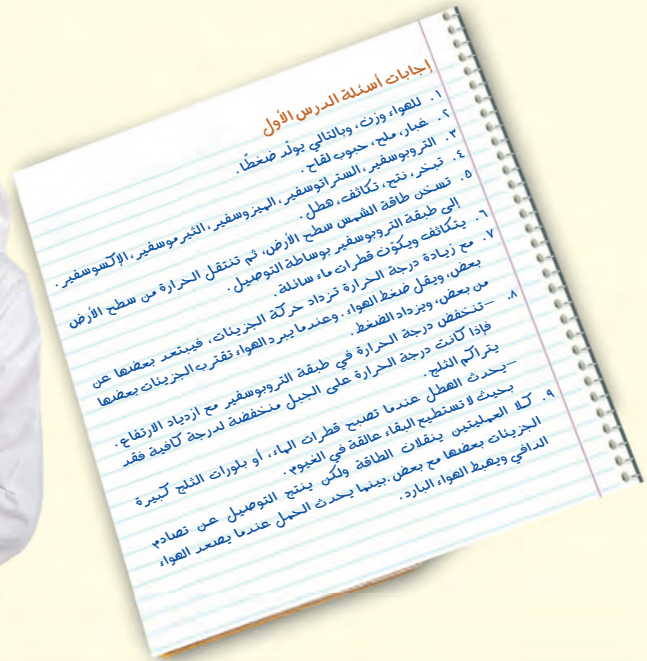 إجابات أسئلة الدرس الأول
١. للهواء وزن، وبالتالي يولّد ضغطًا.
٢. غبار، ملح، حبوب لقاح.
٣. التروبوسفير، الستراتوسفير، الميزوسفير، الثيرموسفير، الإكسوسفير.
٤. تبخر، نتح، تكاثف، هطل.
٥. تسخن طاقة الشمس سطح الأرض، ثم تنتقل الحرارة من سطح الأرض
إلى طبقة التروبوسفير بوساطة التوصيل.
٦. يتكاثف ويكوّن قطرات ماء سائلة.
٧. مع زيادة درجة الحرارة تزداد حركة الجزيئات، فيبتعد بعضها عن
بعض، ويقل ضغط الهواء. وعندما يبرد الهواء تقترب الجزيئات بعضها
من بعض، ويزداد الضغط.
٨. – تنخفض درجة الحرارة في طبقة التروبوسفير مع ازدياد الارتفاع.
فإذا كانت درجة الحرارة على الجبل منخفضة لدرجة كافية فقد
يتراكم الثلج.
– يحدث الهطل عندما تصبح قطرات الماء، أو بلورات الثلج كبيرة
بحيث لا تستطيع البقاء عالقة في الغيوم.
٩. كلا العمليتين ينقلان الطاقة ولكن ينتج التوصيل عن تصادم
الجزيئات بعضها مع بعض. بينما يحدث الحمل عندما يصعد الهواء
الدافي ويهبط الهواء البارد.